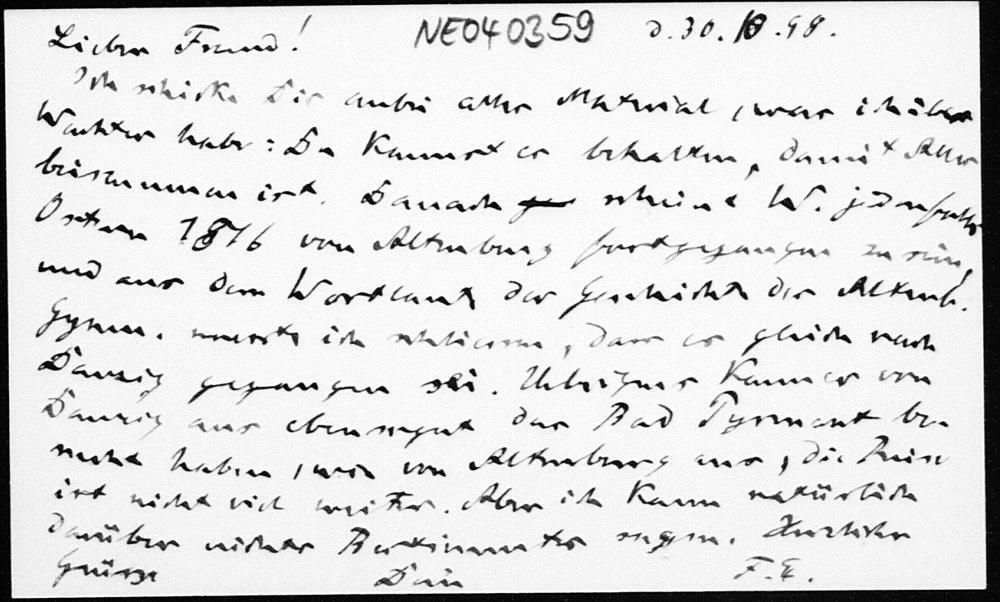 Lieber Freund! NE040359 d. 30. 10. 98.
Ich schicke Dir anbei alles Material, was ich über
Wachter habe: Du kannst es behalten, damit Alles
beisammen ist. Danach scheint W. jedenfalls
Ostern 1876 von Altenburg fortgegangen zu sein,
und aus dem Wortlaute der Geschichte des Altenb.
Gymn. musste ich schliessen, dass er gleich nach
Danzig gegangen sei. Uebrigens kann er von
Danzig aus ebensogut das Bad Pyrmont be-
sucht haben, wie von Altenburg aus, die Reise
ist nicht viel weiter. Aber ich kann natürlich
darüber nichts Bestimmtes sagen. Herzliche
Grüsse Dein F. E.